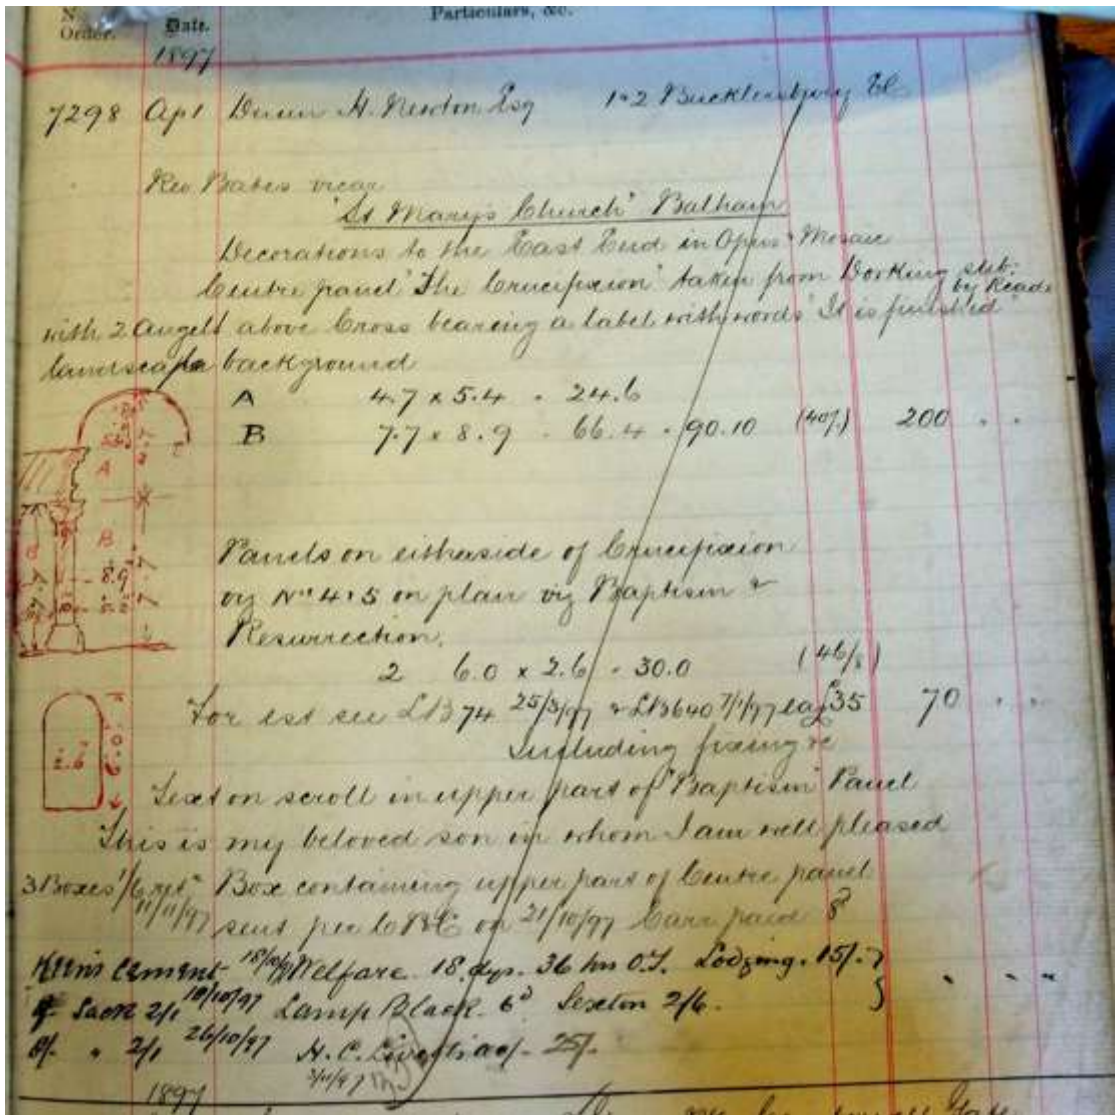 Order. Date. Particulars, &c.
1897
7298 Apl H. Newton Esq 1 & 2 Bucklersbury EC
Rev Bates vicar
"St Mary's Church" Balham
Decorations to the East End in Opus & Mosaic
Centre panel "The Crucifixion" taken from Dorking sub. by Reade
with 2 Angels above Cross bearing a label with words "It is finished"
landscape background
A 4.7 x 5.4 - 24.6
B 7.7 x 8.9 - 66.4 - 90.10 (40/) 200 . .
A
B
8.9
Panels on either side of Crucifixion
viz Nos 4 & 5 on plan viz Baptism &
Resurrection.
2 6.0 x 2.6 - 30.0 (46/8)
For est see LB 74 25/3/97 & LB 640 7/1/97 ea £35 70 . .
Including fixing &c
2.6 6.0
Text on scroll in upper part of "Baptism" Panel
This is my beloved son in whom I am well pleased
3 Boxes 1/6 retd 11/11/97 Box containing upper part of Centre panel
sent per on 21/10/97 Carr paid 8d
Keens cement 18/10/97 Welfare. 18 dys. 36 hrs O.T. Lodging. 15/-
Sack 2/1 10/10/97 Lamp Black. 6d Sexton 2/6.
" 2/1 26/10/97 H. C. 25/-
3/11/97
1897